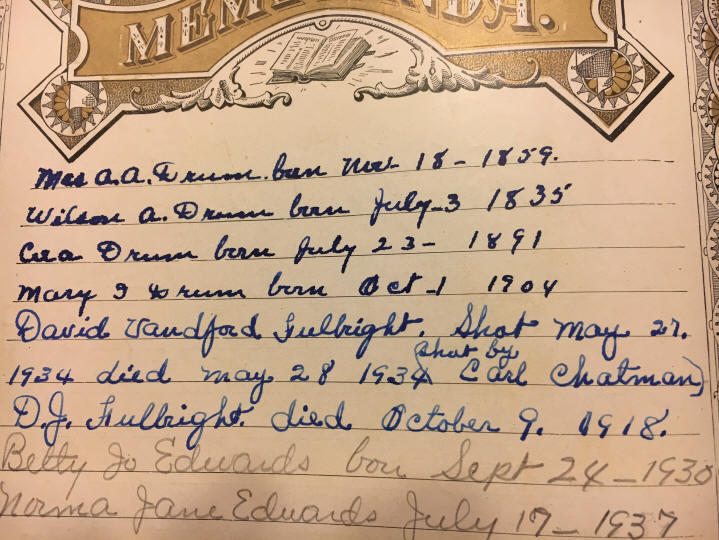 MEMORANDA.
Mrs A.A. Drum. born Nov. 18 - 1859.
Wilson A. Drum born July - 3 1835
Cea Drum born July 23 - 1891
Mary I Drum born Oct - 1 1904
David Vandford Fulbright. Shot May 27.
shot by
1934 died May 28 1934 Carl Chatman)
D.J. Fulbright. died October 9. 1918.
Betty Jo Edwards born Sept 24 - 1930
Norma Jane Edwards July 17 - 1937